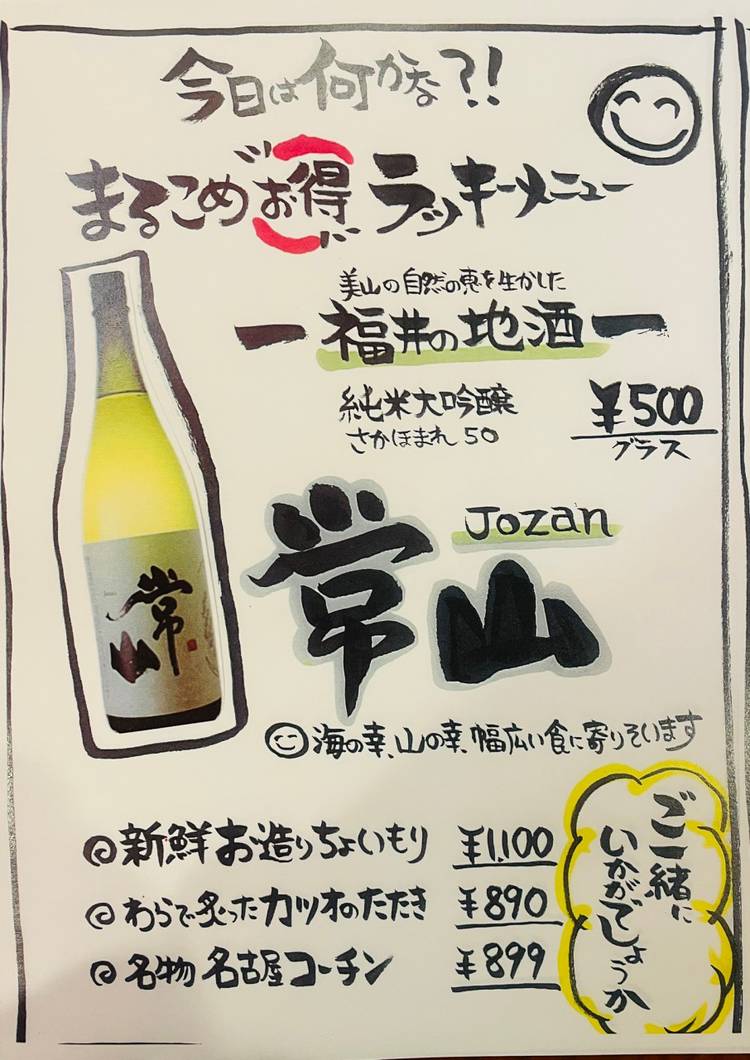 今日は何かな?!
まるこめお得ラッキーメニュー
美山の自然の恵を生かした
ー福井の地酒ー
純米大吟醸
さかほまれ50
¥500
グラス
Jozan
常山
常山
海の幸、山の幸、幅広い食に寄りそいます
新鮮お造りちょいもり ¥1,100
わらで炙ったカツオのたたき ¥890
名物名古屋コーチン ¥899
ご一緒に
いかがでしょうか